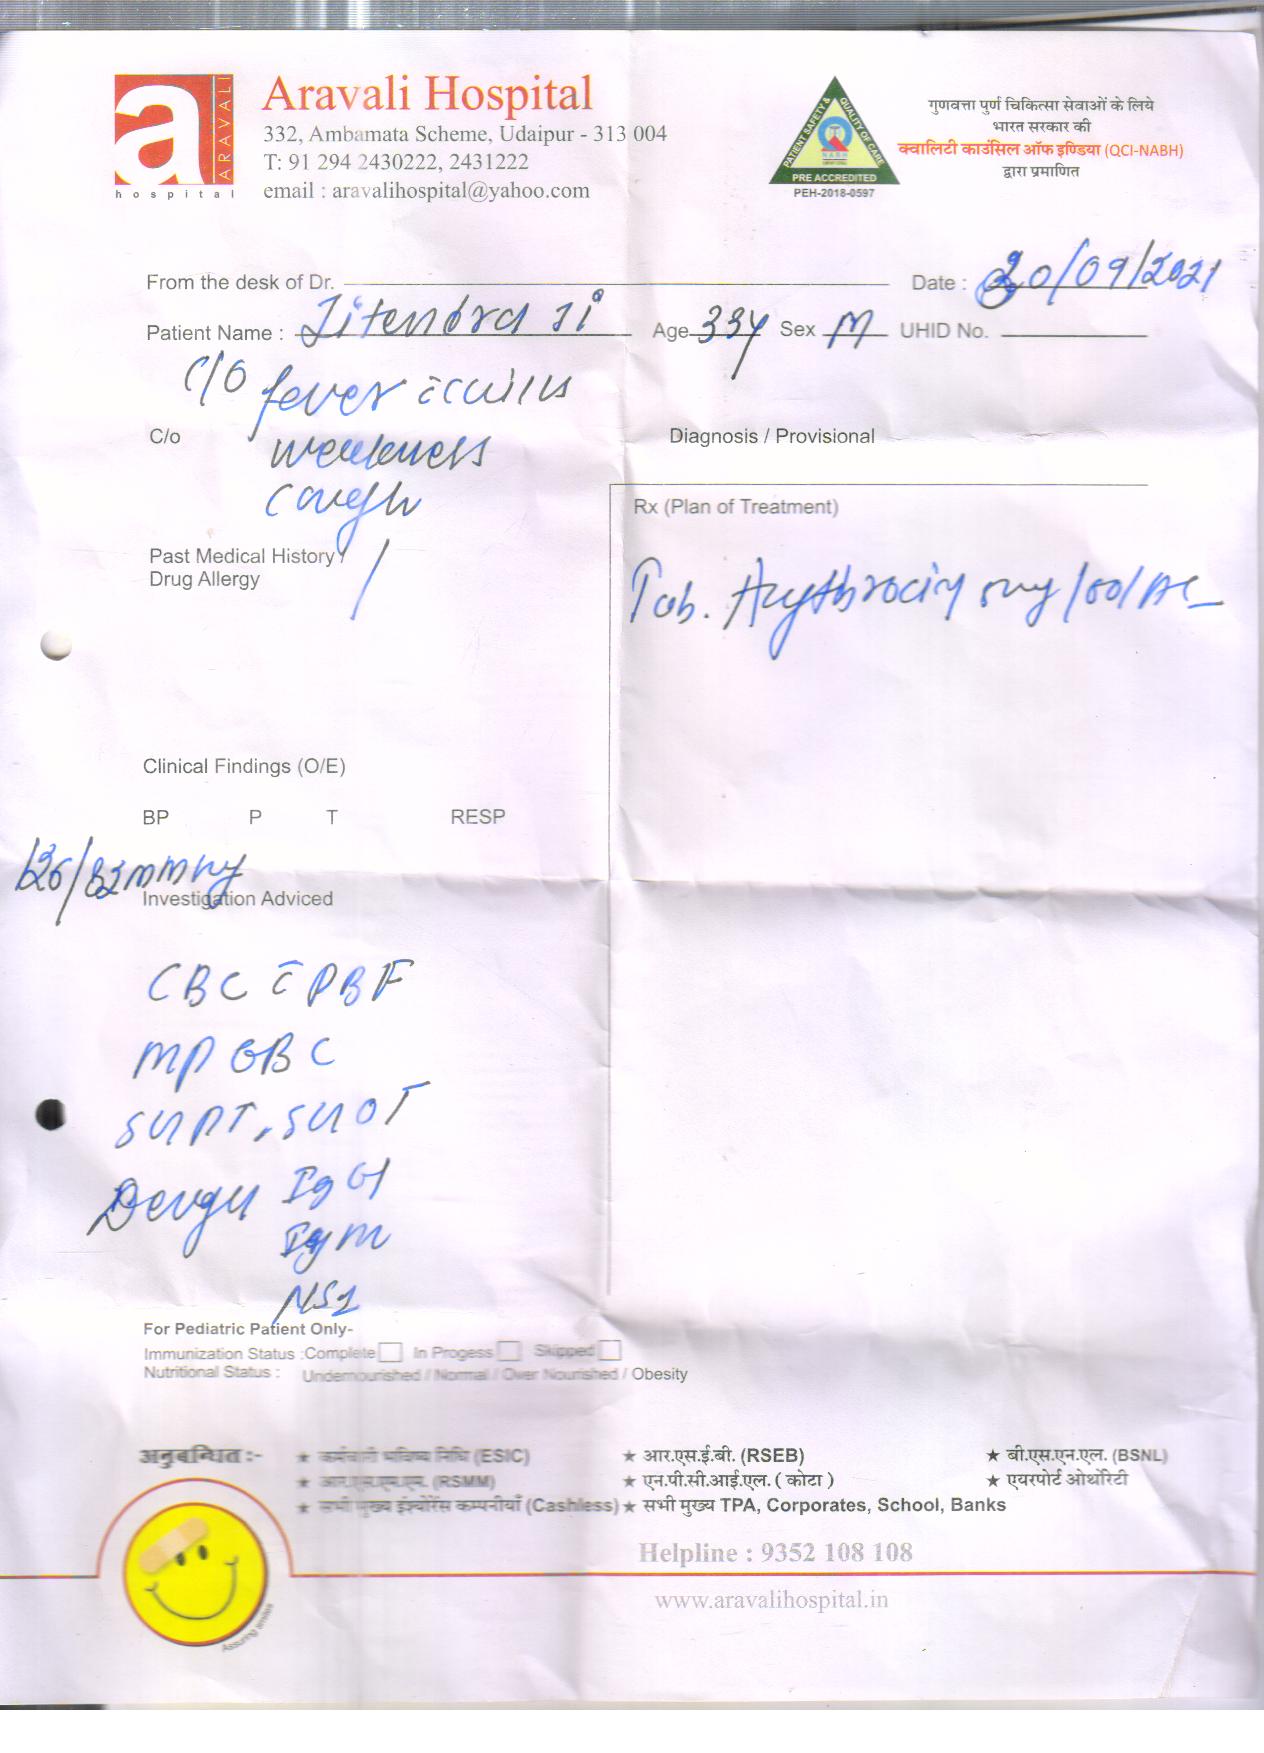 a
ARAVALI
hospital
Aravali Hospital
332, Ambamata Scheme, Udaipur - 313 004
T: 91 294 2430222, 2431222
email : aravalihospital@yahoo.com
PATIENT SAFETY & QUALITY OF CARE
NABH
PRE ACCREDITED
PEH-2018-0597
गुणवत्ता पुर्ण चिकित्सा सेवाओं के लिये
भारत सरकार की
क्वालिटी काउंसिल ऑफ इण्डिया (QCI-NABH)
द्वारा प्रमाणित
From the desk of Dr.
Date : 20/09/2021
Patient Name : Jitendra Ji Age 33y Sex M UHID No.
C/O fever c̄ chills
C/o
weakness
Diagnosis / Provisional
cough
Rx (Plan of Treatment)
Past Medical History /
Drug Allergy
Tab.
Clinical Findings (O/E)
BP P T RESP
126/82mmHg
Investigation Adviced
CBC c̄ PBF
MP QBC
SGPT, SGOT
Dengu IgG
IgM
NS1
For Pediatric Patient Only-
Immunization Status :Complete In Progess Skipped
Nutritional Status : Undernourished / Normal / Over Nourished / Obesity
अनुबन्धित :-
★ कर्मचारी भविष्य निधि (ESIC) ★ आर.एस.ई.बी. (RSEB) ★ बी.एस.एन.एल. (BSNL)
★ आर.एस.एम.एम. (RSMM) ★ एन.पी.सी.आई.एल. ( कोटा ) ★ एयरपोर्ट ओथोरिटी
★ सभी मुख्य इंश्योरेंस कम्पनीयाँ (Cashless) ★ सभी मुख्य TPA, Corporates, School, Banks
Helpline : 9352 108 108
www.aravalihospital.in
Assuring smiles